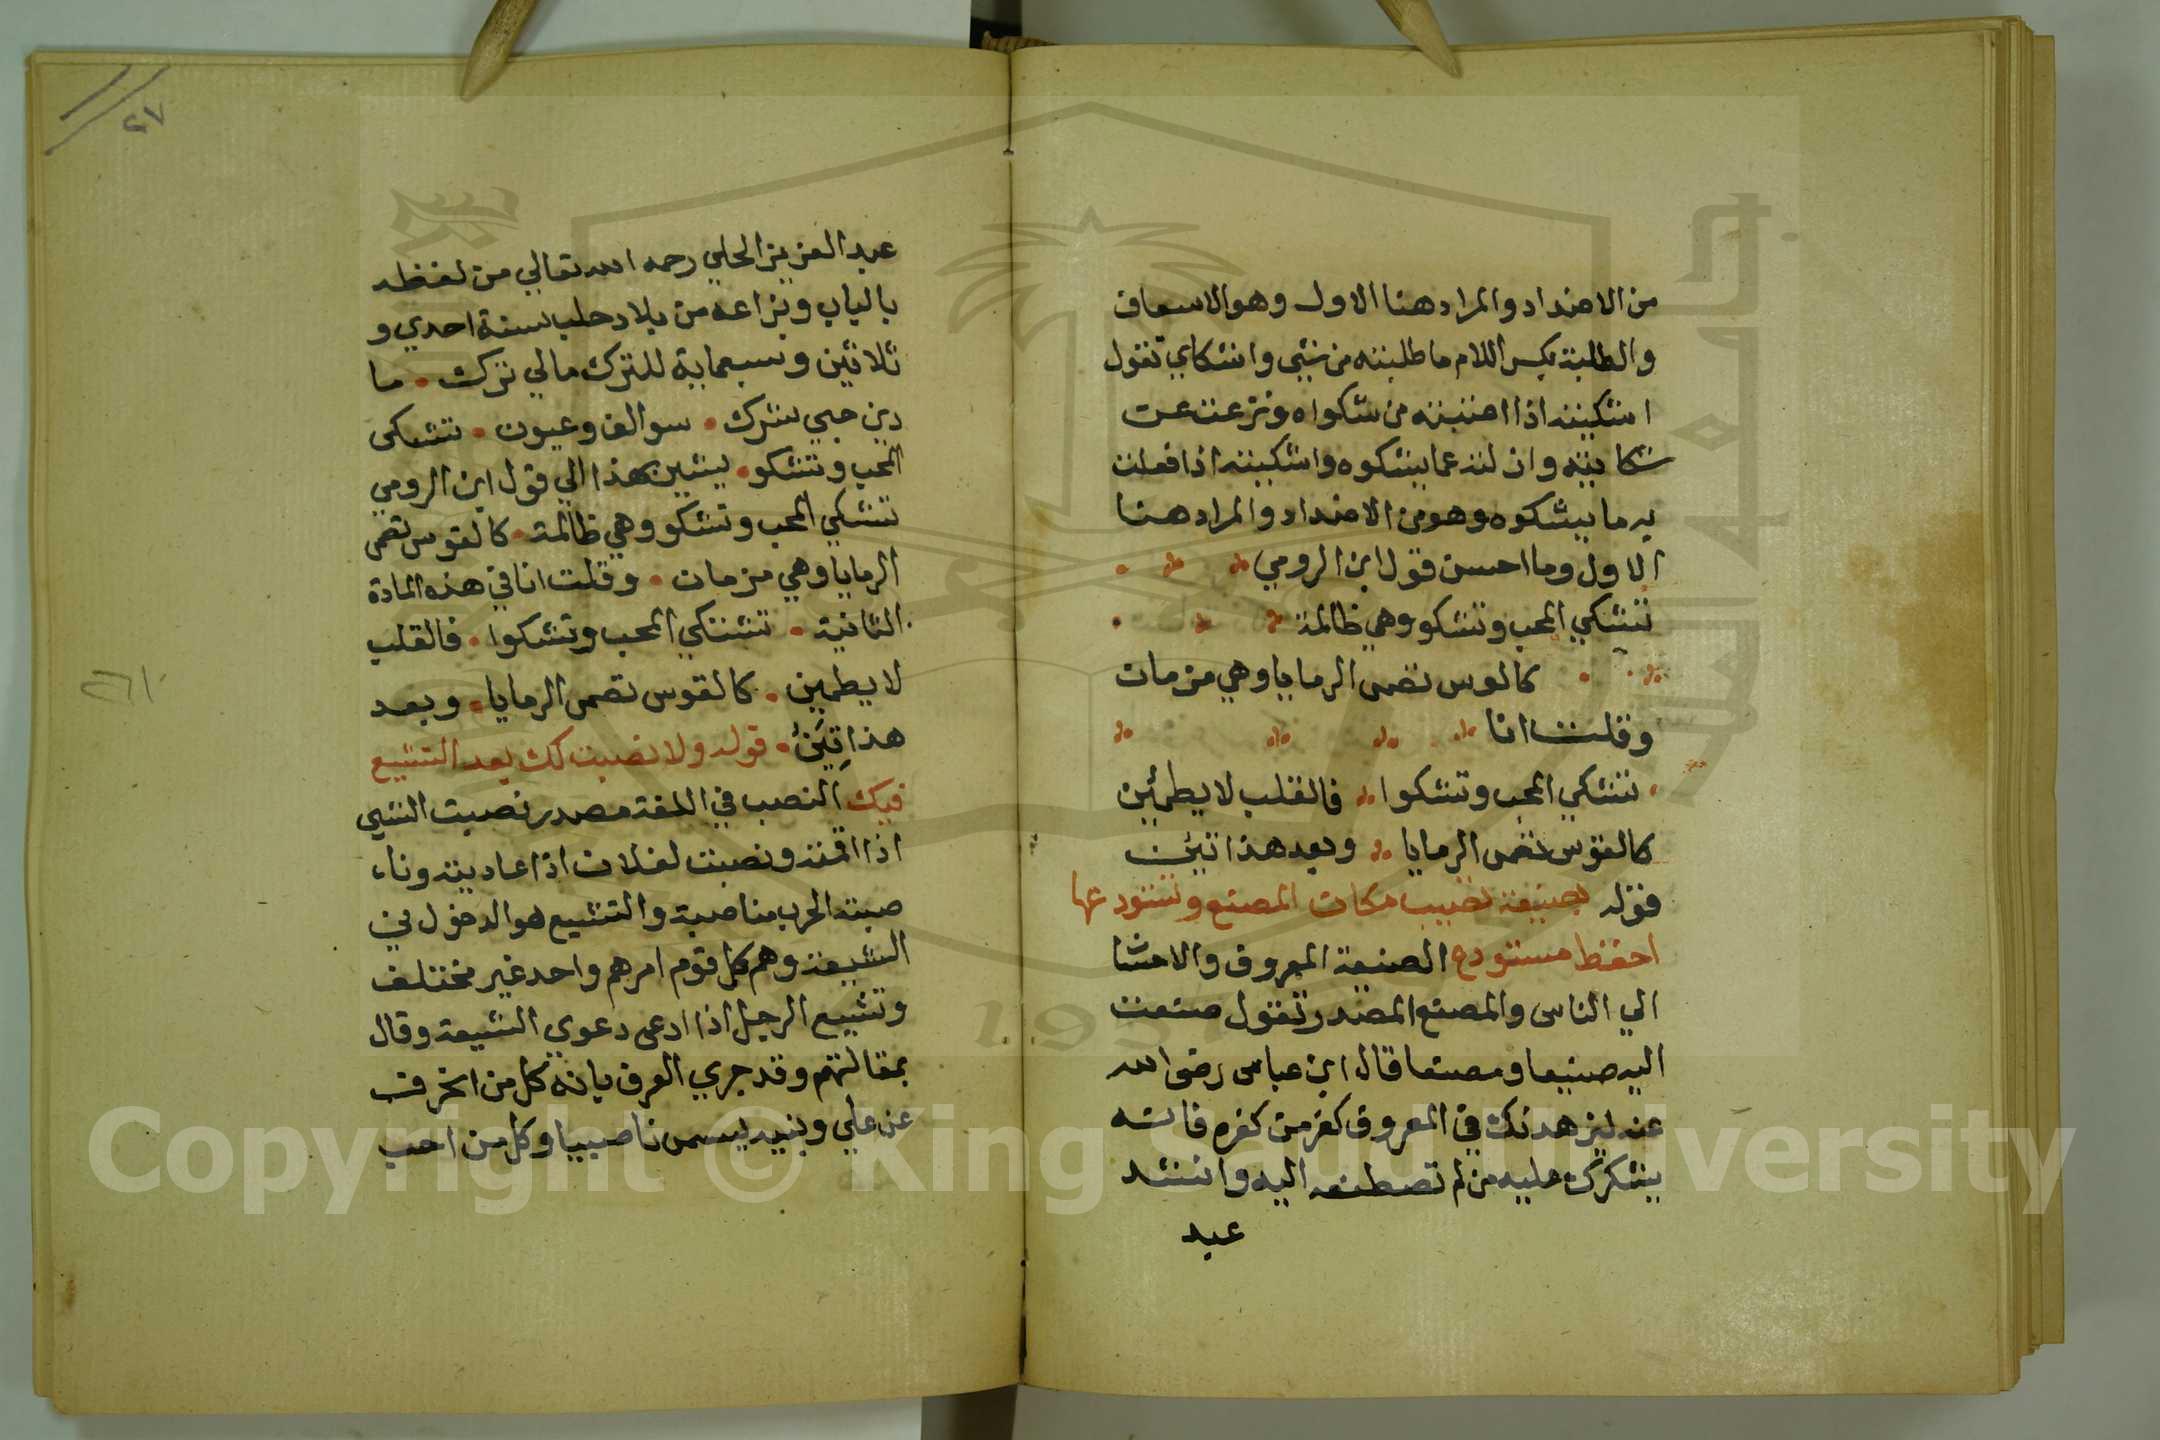 من الاضداد والمراد هنا الاول وهو الاسعاف
والطلبة بكسر اللام ما طلبته من شي واشكاي تقول
اشكيته اذا اضببته من شكواه ونزعت عن
شكايته وازلته عما يشكوه واشكيته اذا فعلت
به ما يشكوه وهو من الاضداد والمراد هنا
الاول وما احسن قول ابن الرومي
تشكي المحب وتشكو وهي ظالمة
كالوس تصمى الرمايا وهي مرنان
وقلت انا
تشتكي المحب وتشكوا فالقلب لا يطمئن
كالقوس تصمى الرمايا وبعد هذا تئن
قوله بصنيعة تصيب مكان المصنع وتستودعها
احفظ مستودع الصنيعة المعروف والاحسا
الي الناس والمصنع المصدر تقول صنعت
اليه صنيعا ومصنعا قال ابن عباس رضى الله
عنه لا يزهدنك في المعروف كفر من كفره فانه
يشكرك عليه من لم تصطنعه اليه وانشد
عبد
٢٧
عبد العزيز الحلي رحمه الله تعالي من لفظه
بالباب وبزاعه من بلاد حلب سنة احدي و
ثلاثين وسبعماية للترك مالي ترك ما
دين حبي شرك سوالف وعيون تشكى
المحب وتشكو يشير بهذا الي قول ابن الرومي
تشكي المحب وتشكو وهي ظالمة كالقوس تصمى
الرمايا وهي مرنان وقلت انا في هذه المادة
الثانية تشتكي المحب وتشكوا فالقلب
لا يطمين كالقوس تصمى الرمايا وبعد
هذا تئن قوله ولا نصبت لك بعد التشيع
فيك النصب في اللغة مصدر نصبت الشي
اذا اقمته ونصبت لفلان اذا عاديته ونا
صبته الحرب مناصبة والتشيع هو الدخول في
الشيعة وهم كل قوم امرهم واحد غير مختلف
وتشيع الرجل اذا ادعى دعوي الشيعة وقال
بمقالتهم وقد جري العرف بانه كل من انحرف
عن علي وبنيه يسمى ناصبيا وكل من احب
٢٦١
Copyright © King Saud University
1957